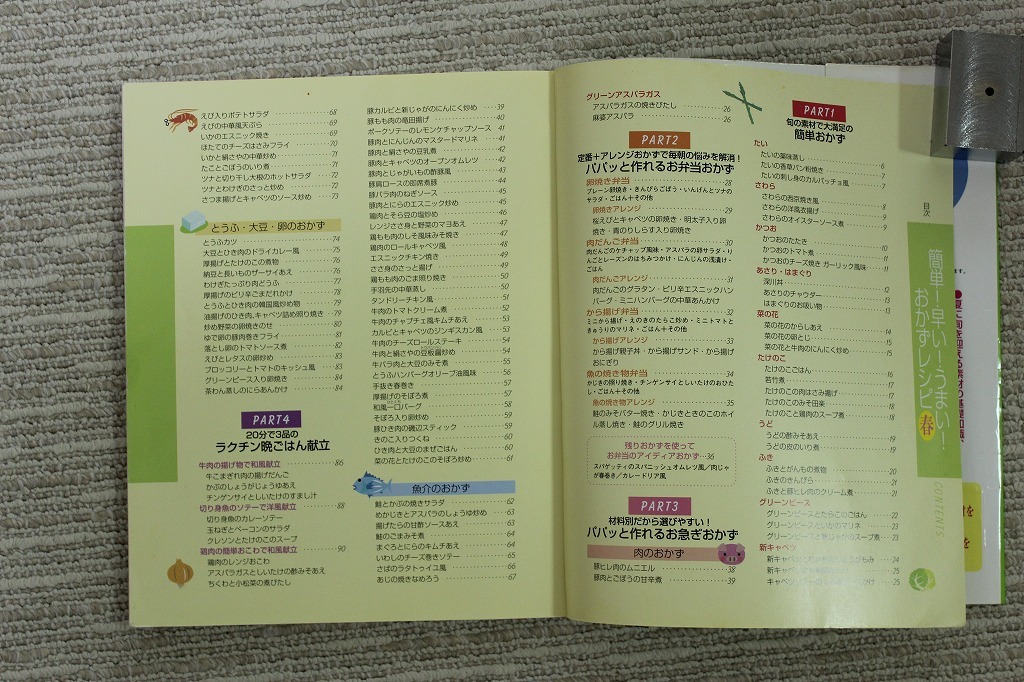 目次
簡単！早い！うまい！
おかずレシピ
春
CONTENTS
PART1
旬の素材で大満足の
簡単おかず
たい
たいの薬味蒸し 6
たいの香草パン粉焼き 7
たいの刺し身のカルパッチョ風 7
さわら
さわらの西京焼き風 8
さわらの洋風衣揚げ 9
さわらのオイスターソース煮 9
かつお
かつおのたたき 10
かつおのトマト煮 11
かつおのチーズ焼き ガーリック風味 11
あさり・はまぐり
深川丼 12
あさりのチャウダー 13
はまぐりのお吸い物 13
菜の花
菜の花のからしあえ 14
菜の花の卵とじ 15
菜の花と牛肉のにんにく炒め 15
たけのこ
たけのこごはん 16
若竹煮 17
たけのこの肉はさみ揚げ 17
たけのこのみそ田楽 18
たけのこと鶏肉のスープ煮 18
うど
うどの酢みそあえ 19
うどの皮のいり煮 19
ふき
ふきとがんもの煮物 20
ふきのきんぴら 21
ふきと豚ヒレ肉のクリーム煮 21
グリーンピース
グリーンピースとたらこのごはん 22
グリーンピースといかのマリネ 23
グリーンピースと新じゃがのスープ煮 23
新キャベツ
24
25
25
グリーンアスパラガス
アスパラガスの焼きびたし 26
麻婆アスパラ 26
PART2
定番＋アレンジおかずで毎朝の悩みを解消！
パパッと作れるお弁当おかず
卵焼き弁当 28
プレーン卵焼き・きんぴらごぼう・いんげんとツナの
サラダ・ごはん＋その他
卵焼きアレンジ 29
桜えびとキャベツの卵焼き・明太子入り卵
焼き・青のりしらす入り卵焼き
肉だんご弁当 30
肉だんごのケチャップ風味・アスパラの卵サラダ・り
んごとレーズンのはちみつかけ・にんじんの浅漬け・
ごはん
肉だんごアレンジ 31
肉だんごのグラタン・ピリ辛エスニックハン
バーグ・ミニハンバーグの中華あんかけ
から揚げ弁当 32
ミニから揚げ・えのきのたらこ炒め・ミニトマトと
きゅうりのマリネ・ごはん＋その他
から揚げアレンジ 33
から揚げ親子丼・から揚げサンド・から揚げ
おにぎり
魚の焼き物弁当 34
かじきの照り焼き・チンゲンサイとしいたけのおひ
たし・ごはん＋その他
魚の焼き物アレンジ 35
鮭のみそバター焼き・かじきときのこのホイ
ル蒸し焼き・鮭のグリル焼き
残りおかずを使って
お弁当のアイディアおかず 36
スパゲッティのスパニッシュオムレツ風／肉じゃ
が春巻き／カレードリア風
PART3
材料別だから選びやすい！
パパッと作れるお急ぎおかず
肉のおかず
豚ヒレ肉のムニエル 38
豚肉とごぼうの甘辛煮 39
豚カルビと新じゃがのにんにく炒め 39
豚もも肉の竜田揚げ 40
ポークソテーのレモンケチャップソース 41
豚肉とにんじんのマスタードマリネ 41
豚肉と絹さやの豆乳煮 42
豚肉とキャベツのオープンオムレツ 42
豚肉とじゃがいもの酢豚風 43
豚肩ロースの即席煮豚 44
豚バラ肉のねぎソース 45
豚肉とにらのエスニック炒め 45
鶏肉とそら豆の塩炒め 46
ゆでささ身と野菜のマヨあえ 47
鶏もも肉のしそ風味みそ焼き 47
鶏肉のロールキャベツ風 48
エスニックチキン焼き 49
ささ身のさっと揚げ 49
鶏もも肉のごま照り焼き 50
手羽先の中華蒸し 50
タンドリーチキン風 51
牛肉のトマトクリーム煮 52
牛肉のチャプチェ風キムチあえ 53
カルビとキャベツのジンギスカン風 53
牛肉のチーズロールステーキ 54
牛肉と絹さやの豆板醤炒め 54
牛バラ肉と大豆のみそ煮 55
とうふハンバーグオリーブ油風味 56
手抜き春巻き 57
厚揚げのそぼろ煮 57
和風一口バーグ 58
そぼろ入り卵炒め 58
豚ひき肉の磯辺スティック 59
きのこ入りつくね 60
ひき肉と大豆のまぜごはん 60
菜の花とたけのこのそぼろ炒め 61
魚介のおかず
鮭とかぶの焼きサラダ 62
めかじきとアスパラのしょうゆ炒め 63
揚げたらの甘酢ソースあえ 63
鮭のごまみそ煮 64
まぐろとにらのキムチあえ 64
いわしのチーズ巻きソテー 65
さばのラタトゥイユ風 66
あじの焼きなめろう 67
えび入りポテトサラダ 68
えびの中華風天ぷら 69
いかのエスニック焼き 69
ほたてのチーズはさみフライ 70
いかと絹さやの中華炒め 71
たことごぼうのいり煮 71
ツナと切り干し大根のホットサラダ 72
ツナとわけぎのさっと炒め 72
さつま揚げとキャベツのソース炒め 73
とうふ・大豆・卵のおかず
とうふカツ 74
大豆とひき肉のドライカレー風 75
厚揚げとたけのこの煮物 76
納豆と長いものザーサイあえ 76
わけぎたっぷり肉どうふ 77
厚揚げのピリ辛ごまだれかけ 78
とうふとひき肉の韓国風炒め物 79
油揚げのひき肉、キャベツ詰め照り焼き 79
炒め野菜の卵焼きのせ 80
ゆで卵の豚肉巻きフライ 81
落とし卵のトマトソース煮 82
えびとレタスの卵炒め 83
ブロッコリーとトマトのキッシュ風 83
グリーンピース入り卵焼き 84
茶わん蒸しのにらあんかけ 84
PART4
20分で3品の
ラクチン晩ごはん献立
牛肉の揚げ物で和風献立 86
牛こまぎれ肉の揚げだんご
かぶのしょうがじょうゆあえ
チンゲンサイとしいたけのすまし汁
切り身魚のソテーで洋風献立 88
切り身魚のカレーソテー
玉ねぎとベーコンのサラダ
クレソンとたけのこのスープ
鶏肉の簡単おこわで和風献立 90
鶏肉のレンジおこわ
アスパラガスとしいたけの酢みそあえ
ちくわと小松菜の煮びたし